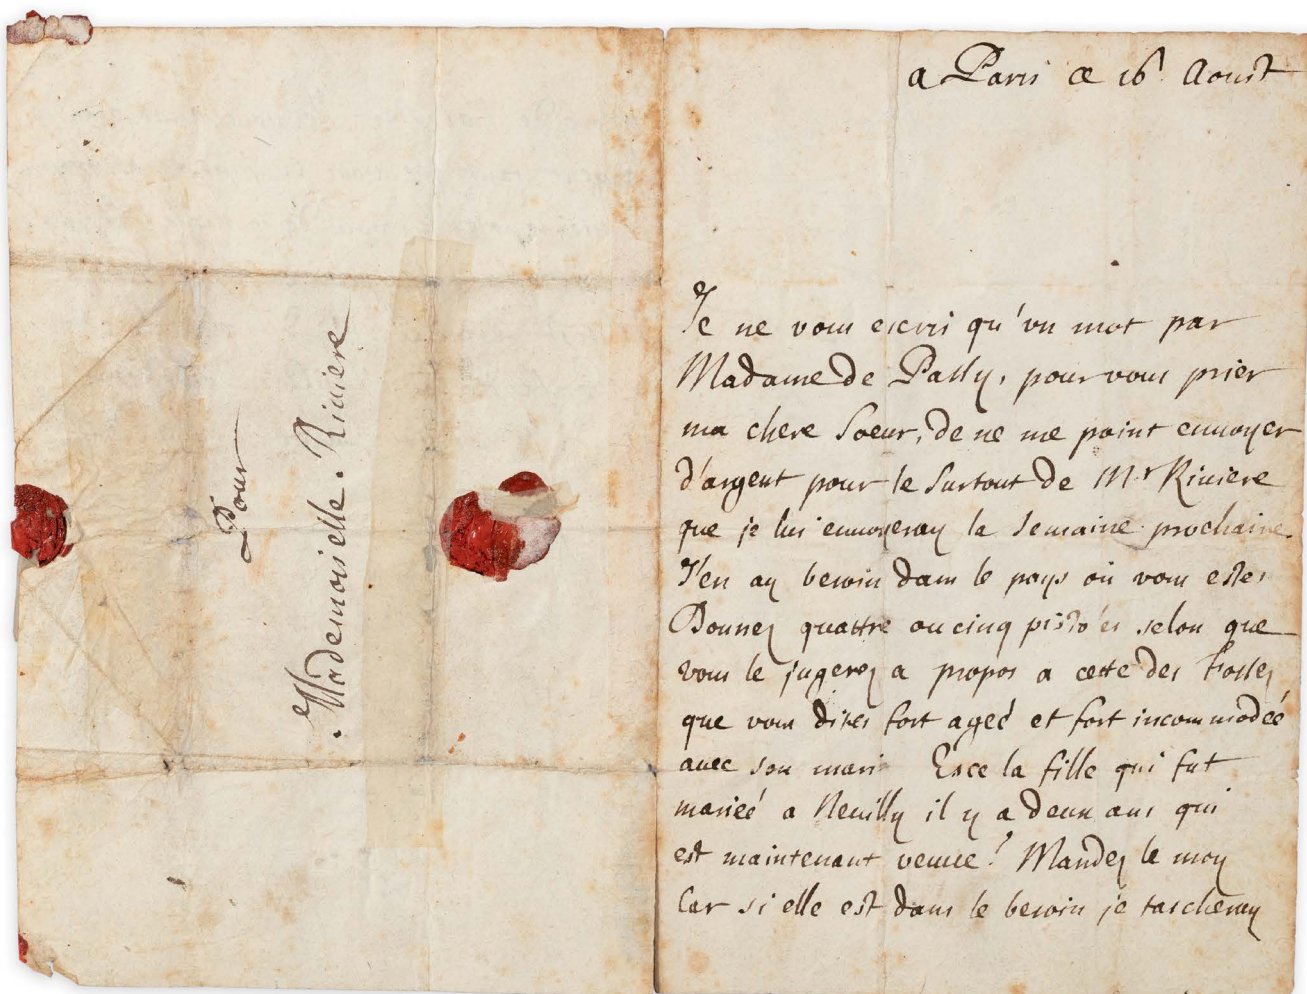 Pour
Mademoiselle. Riuiere
a Paris ce 16 Aoust
Je ne vous escris qu'vn mot par
Madame de Passy, pour vous prier
ma chere Soeur, de ne me point enuoyer
d'argent pour le Surtout de Mr Riuiere
que je lui enuoyeray la Semaine prochaine.
J'en ay besoin dans le pays où vous estes
Donnez quattre ou cinq pistoles selon que
vous le jugerez a propos a cette des Fossez
que vous dites fort ageé et fort incommodeé
auec son mari Esce la fille qui fut
marieé a Neuilly il y a deux ans qui
est maintenant veuue? Mandez le moy
Car si elle est dans le besoin je tascheray